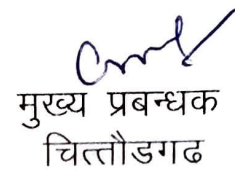 मुख्य प्रबन्धक
चित्तौडगढ